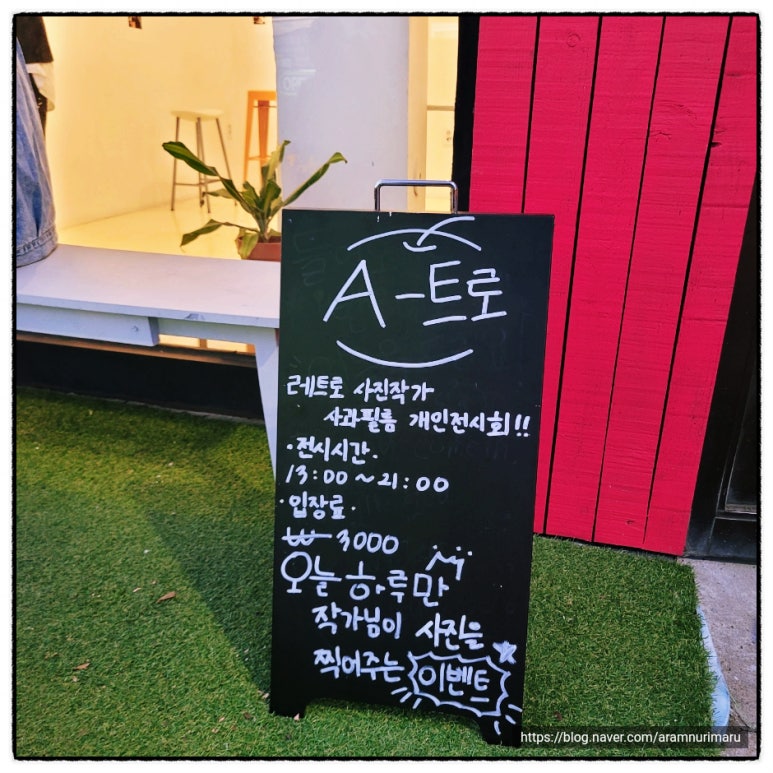 A-트로
레트로 사진작가
사과필름 개인전시회!!
·전시시간·
13:00~21:00
·입장료·
₩ 3000
오늘 하루만
작가님이 사진을
찍어주는 이벤트
https://blog.naver.com/aramnurimaru